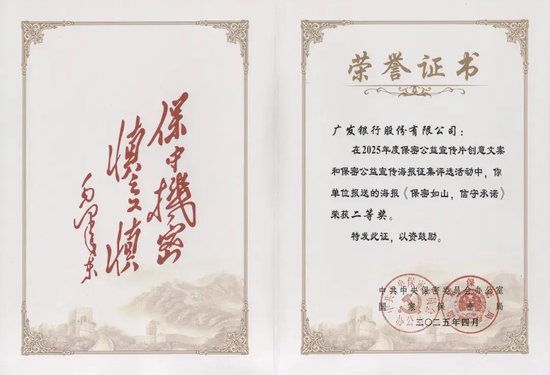 保守機密
慎之又慎
毛泽东
荣誉证书
广发银行股份有限公司：
在2025年度保密公益宣传片创意文案
和保密公益宣传海报征集评选活动中，你
单位报送的海报《保密如山，信守承诺》
荣获二等奖。
特发此证，以资鼓励。
中共中央保密委员会办公室
国家保密局
二〇二五年四月